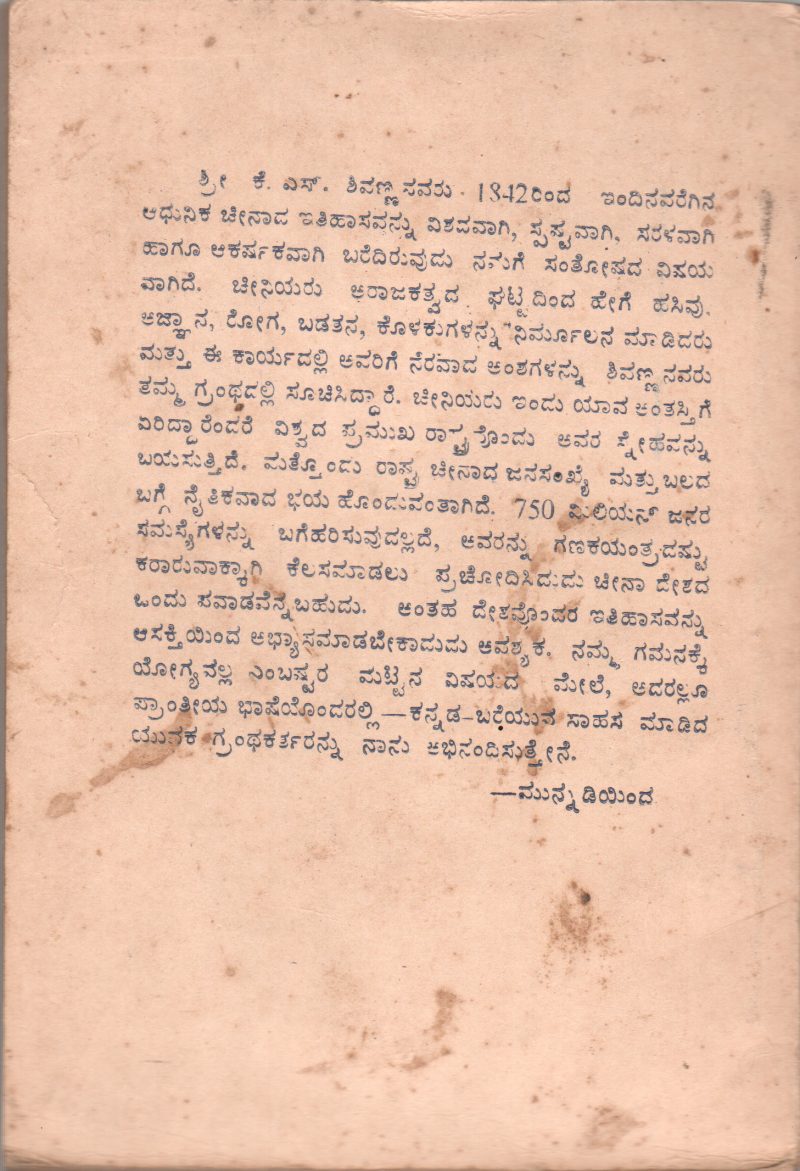 ಶ್ರೀ ಕೆ. ಎಸ್. ಶಿವಣ್ಣನವರು 1842ರಿಂದ ಇಂದಿನವರೆಗಿನ
ಆಧುನಿಕ ಚೀನಾದ ಇತಿಹಾಸವನ್ನು ವಿಶದವಾಗಿ, ಸ್ಪಷ್ಟವಾಗಿ, ಸರಳವಾಗಿ
ಹಾಗೂ ಆಕರ್ಷಕವಾಗಿ ಬರೆದಿರುವುದು ನನಗೆ ಸಂತೋಷದ ವಿಷಯ
ವಾಗಿದೆ. ಚೀನಿಯರು ಅರಾಜಕತ್ವದ ಘಟ್ಟದಿಂದ ಹೇಗೆ ಹಸಿವು,
ಅಜ್ಞಾನ, ರೋಗ, ಬಡತನ, ಕೊಳಕುಗಳನ್ನು ನಿರ್ಮೂಲನ ಮಾಡಿದರು
ಮತ್ತು ಈ ಕಾರ್ಯದಲ್ಲಿ ಅವರಿಗೆ ನೆರವಾದ ಅಂಶಗಳನ್ನು ಶಿವಣ್ಣನವರು
ತಮ್ಮ ಗ್ರಂಥದಲ್ಲಿ ಸೂಚಿಸಿದ್ದಾರೆ. ಚೀನಿಯರು ಇಂದು ಯಾವ ಅಂತಸ್ತಿಗೆ
ಏರಿದ್ದಾರೆಂದರೆ ವಿಶ್ವದ ಪ್ರಮುಖ ರಾಷ್ಟ್ರವೊಂದು ಅವರ ಸ್ನೇಹವನ್ನು
ಬಯಸುತ್ತಿದೆ. ಮತ್ತೊಂದು ರಾಷ್ಟ್ರ ಚೀನಾದ ಜನಸಂಖ್ಯೆ ಮತ್ತು ಬಲದ
ಬಗ್ಗೆ ನೈತಿಕವಾದ ಭಯ ಹೊಂದುವಂತಾಗಿದೆ. 750 ಮಿಲಿಯನ್ ಜನರ
ಸಮಸ್ಯೆಗಳನ್ನು ಬಗೆಹರಿಸುವುದಲ್ಲದೆ, ಅವರನ್ನು ಗಣಕಯಂತ್ರದಷ್ಟು
ಕರಾರುವಾಕ್ಕಾಗಿ ಕೆಲಸಮಾಡಲು ಪ್ರಚೋದಿಸಿದುದು ಚೀನಾ ದೇಶದ
ಒಂದು ಪವಾಡವೆನ್ನಬಹುದು. ಅಂತಹ ದೇಶವೊಂದರ ಇತಿಹಾಸವನ್ನು
ಆಸಕ್ತಿಯಿಂದ ಅಭ್ಯಾಸಮಾಡಬೇಕಾದುದು ಆವಶ್ಯಕ. ನಮ್ಮ ಗಮನಕ್ಕೆ
ಯೋಗ್ಯವಲ್ಲ ಎಂಬಷ್ಟರ ಮಟ್ಟಿನ ವಿಷಯದ ಮೇಲೆ, ಅದರಲ್ಲೂ
ಪ್ರಾಂತೀಯ ಭಾಷೆಯೊಂದರಲ್ಲಿ—ಕನ್ನಡ-ಬರೆಯುವ ಸಾಹಸ ಮಾಡಿದ
ಯುವಕ ಗ್ರಂಥಕರ್ತರನ್ನು ನಾನು ಅಭಿನಂದಿಸುತ್ತೇನೆ.
—ಮುನ್ನುಡಿಯಿಂದ